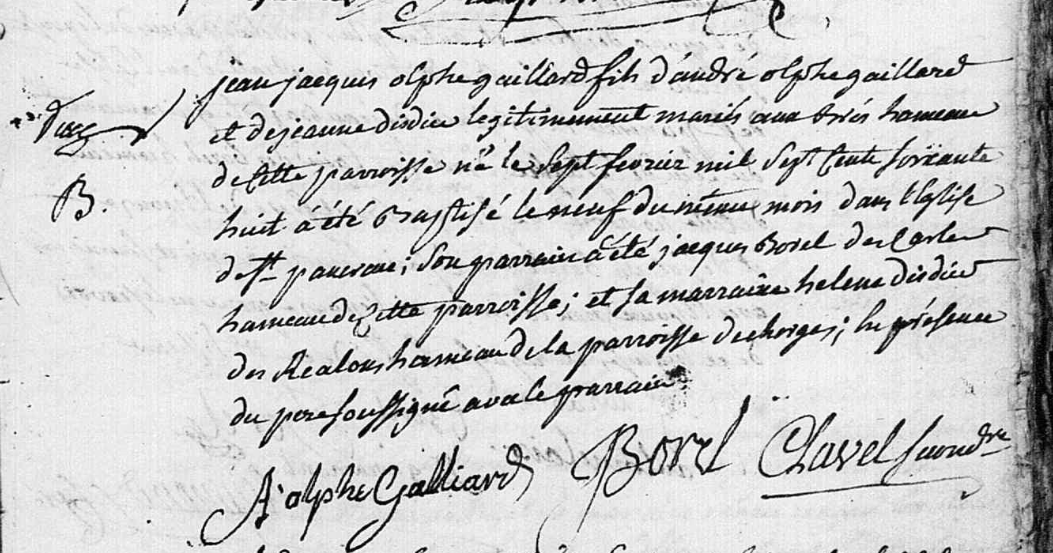 jean jacques olphe gaillard fils d'andré olphe gaillard
et de jeanne disdier legitimement mariés aux hameau
de Cette parroisse né le sept fevrier mil sept Cents soixante
huit à été Baptisé le neuf du même mois dans l'Eglise
de st pancrace; son parrain à été jacques Borel des Carles
hameau de Cette parroisse; et sa marraine helene disdier
des Realons hameau de la parroisse de chorges; En présence
du pere soussigné avec le parrain
B.
A: olphe Galliard Borel Clavel second.re